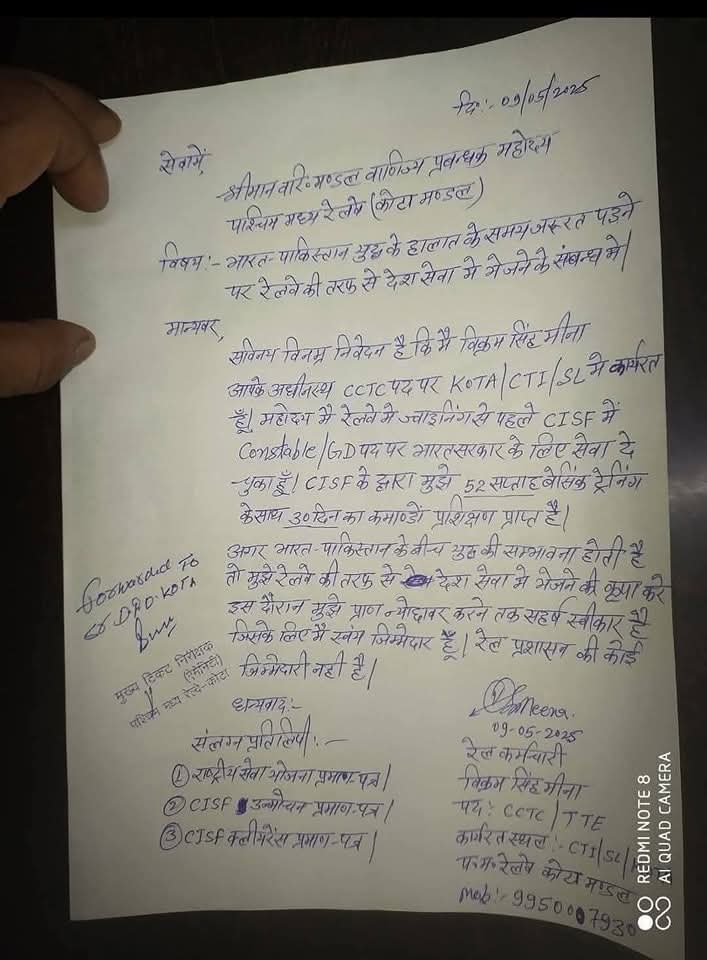 दि:- 09/05/2025
सेवामें,
श्रीमान वरि० मण्डल वाणिज्य प्रबन्धक महोदय
पश्चिम मध्य रेलवे (कोटा मण्डल)
विषय:- भारत-पाकिस्तान युद्ध के हालात के समय जरूरत पड़ने
पर रेलवे की तरफ से देश सेवा मे भेजने के संबन्ध मे।
मान्यवर,
सविनय विनम्र निवेदन है कि मै विक्रम सिंह मीना
आपके अधीनस्थ CCTC पद पर KOTA/CTI/SL मे कार्यरत
हूँ। महोदय मै रेलवे मे ज्वाइनिंग से पहले CISF में
Constable/GD पद पर भारत सरकार के लिए सेवा दे
चुका हूँ। CISF के द्वारा मुझे 52 सप्ताह बेसिक ट्रेनिंग
के साथ 30 दिन का कमाण्डो प्रशिक्षण प्राप्त है।
अगर भारत-पाकिस्तान के बीच युद्ध की सम्भावना होती है
तो मुझे रेलवे की तरफ से देश सेवा मे भेजने की कृपा करे
इस दौरान मुझे प्राण न्योछावर करने तक सहर्ष स्वीकार है
जिसके लिए मै स्वंय जिम्मेदार हूँ। रेल प्रशासन की कोई
जिम्मेदारी नही है।
धन्यवाद:-
Forwarded To
Sr DPO-KOTA
मुख्य टिकट निरीक्षक
पश्चिम मध्य रेल्वे-कोटा
संलग्न प्रतिलिपी:-
① राष्ट्रीय सेवा योजना प्रमाण पत्र।
② CISF उन्मोचन प्रमाण-पत्र।
③ CISF क्लीयरेंस प्रमाण-पत्र।
Meena
09-05-2025
रेल कर्मचारी
विक्रम सिंह मीना
पद:- CCTC/TTE
कार्यरत स्थल:- CTI/SL/
प०म० रेलवे कोटा मण्डल
Mob:- 9950007930
REDMI NOTE 8
AI QUAD CAMERA